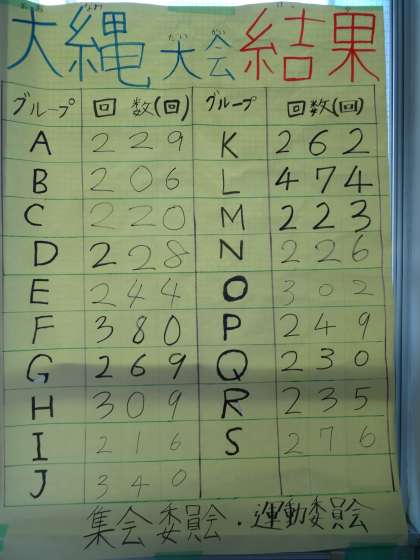 大縄大会結果
グループ 回数(回) グループ 回数(回)
A 229 K 262
B 206 L 474
C 220 M 223
D 228 N 226
E 244 O 302
F 380 P 249
G 269 Q 230
H 309 R 235
I 216 S 276
J 340
集会委員会・運動委員会